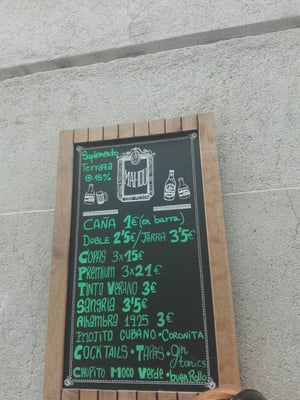 Suplemento
Terraza
⊕15%
MAHOU
CAÑA 1€ (en barra)
DOBLE 2'5€/JARRA 3'5€
COPAS 3x15€
PREMIUM 3x21€
TINTO VERANO 3€
SANGRIA 3'5€
Alhambra 1925 3€
¡MOJITO CUBANO • CORONITA
COCKTAILS • TAPAS • Gin tonics
CHUPITO MOCO VERDE • buen Rollo